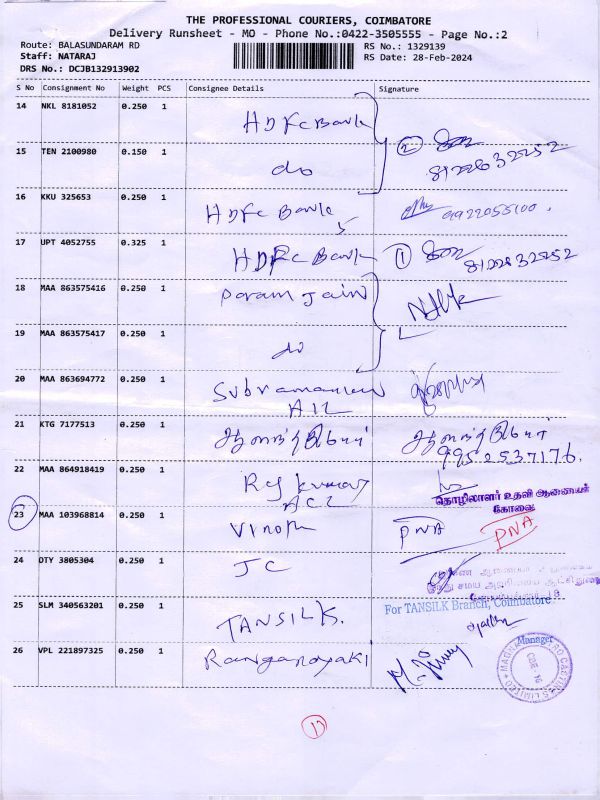 THE PROFESSIONAL COURIERS, COIMBATORE
Delivery Runsheet - MO - Phone No.:0422-3505555 - Page No.:2
Route: BALASUNDARAM RD
RS No.: 1329139
Staff: NATARAJ
RS Date: 28-Feb-2024
DRS No.: DCJB132913902
S No Consignment No Weight PCS Consignee Details Signature
14 NKL 8181052 0.250 1 HDFC Bank
15 TEN 2100980 0.150 1 do 2 8122832252
16 KKU 325653 0.250 1 HDFC Bank 9922055100.
17 UPT 4052755 0.325 1 HDFC Bank 1 8122832252
18 MAA 863575416 0.250 1 Param Jain
19 MAA 863575417 0.250 1 do
20 MAA 863694772 0.250 1 Subramanian
21 KTG 7177513 0.250 1
9952537176.
22 MAA 864918419 0.250 1 Raj Kumar
ACL
தொழிலாளர் உதவி ஆணையர்
கோவை
23 MAA 103968814 0.250 1 Vinoth PNA PNA
24 DTY 3805304 0.250 1 JC
25 SLM 340563201 0.250 1 TANSILK.
For TANSILK Branch, Coimbatore.
Manager
26 VPL 221897325 0.250 1 Ranganayaki
CBE